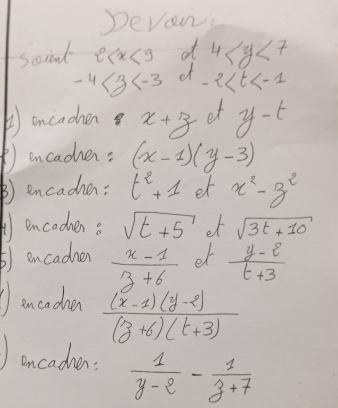 Devoir:
soient 2<x<9 et 4<y<7
-4<z<-3 et -2<t<-1
1) encadrer x+z et y-t
2) encadrer : (x-1)(y-3)
3) encadrer : t²+1 et x²-z²
4) encadrer : √(t+5) et √(3t+10)
5) encadrer (x-1)/(z+6) et (y-2)/(t+3)
) encadrer ((x-1)(y-2))/((z+6)(t+3))
) encadrer : 1/(y-2) - 1/(z+7)